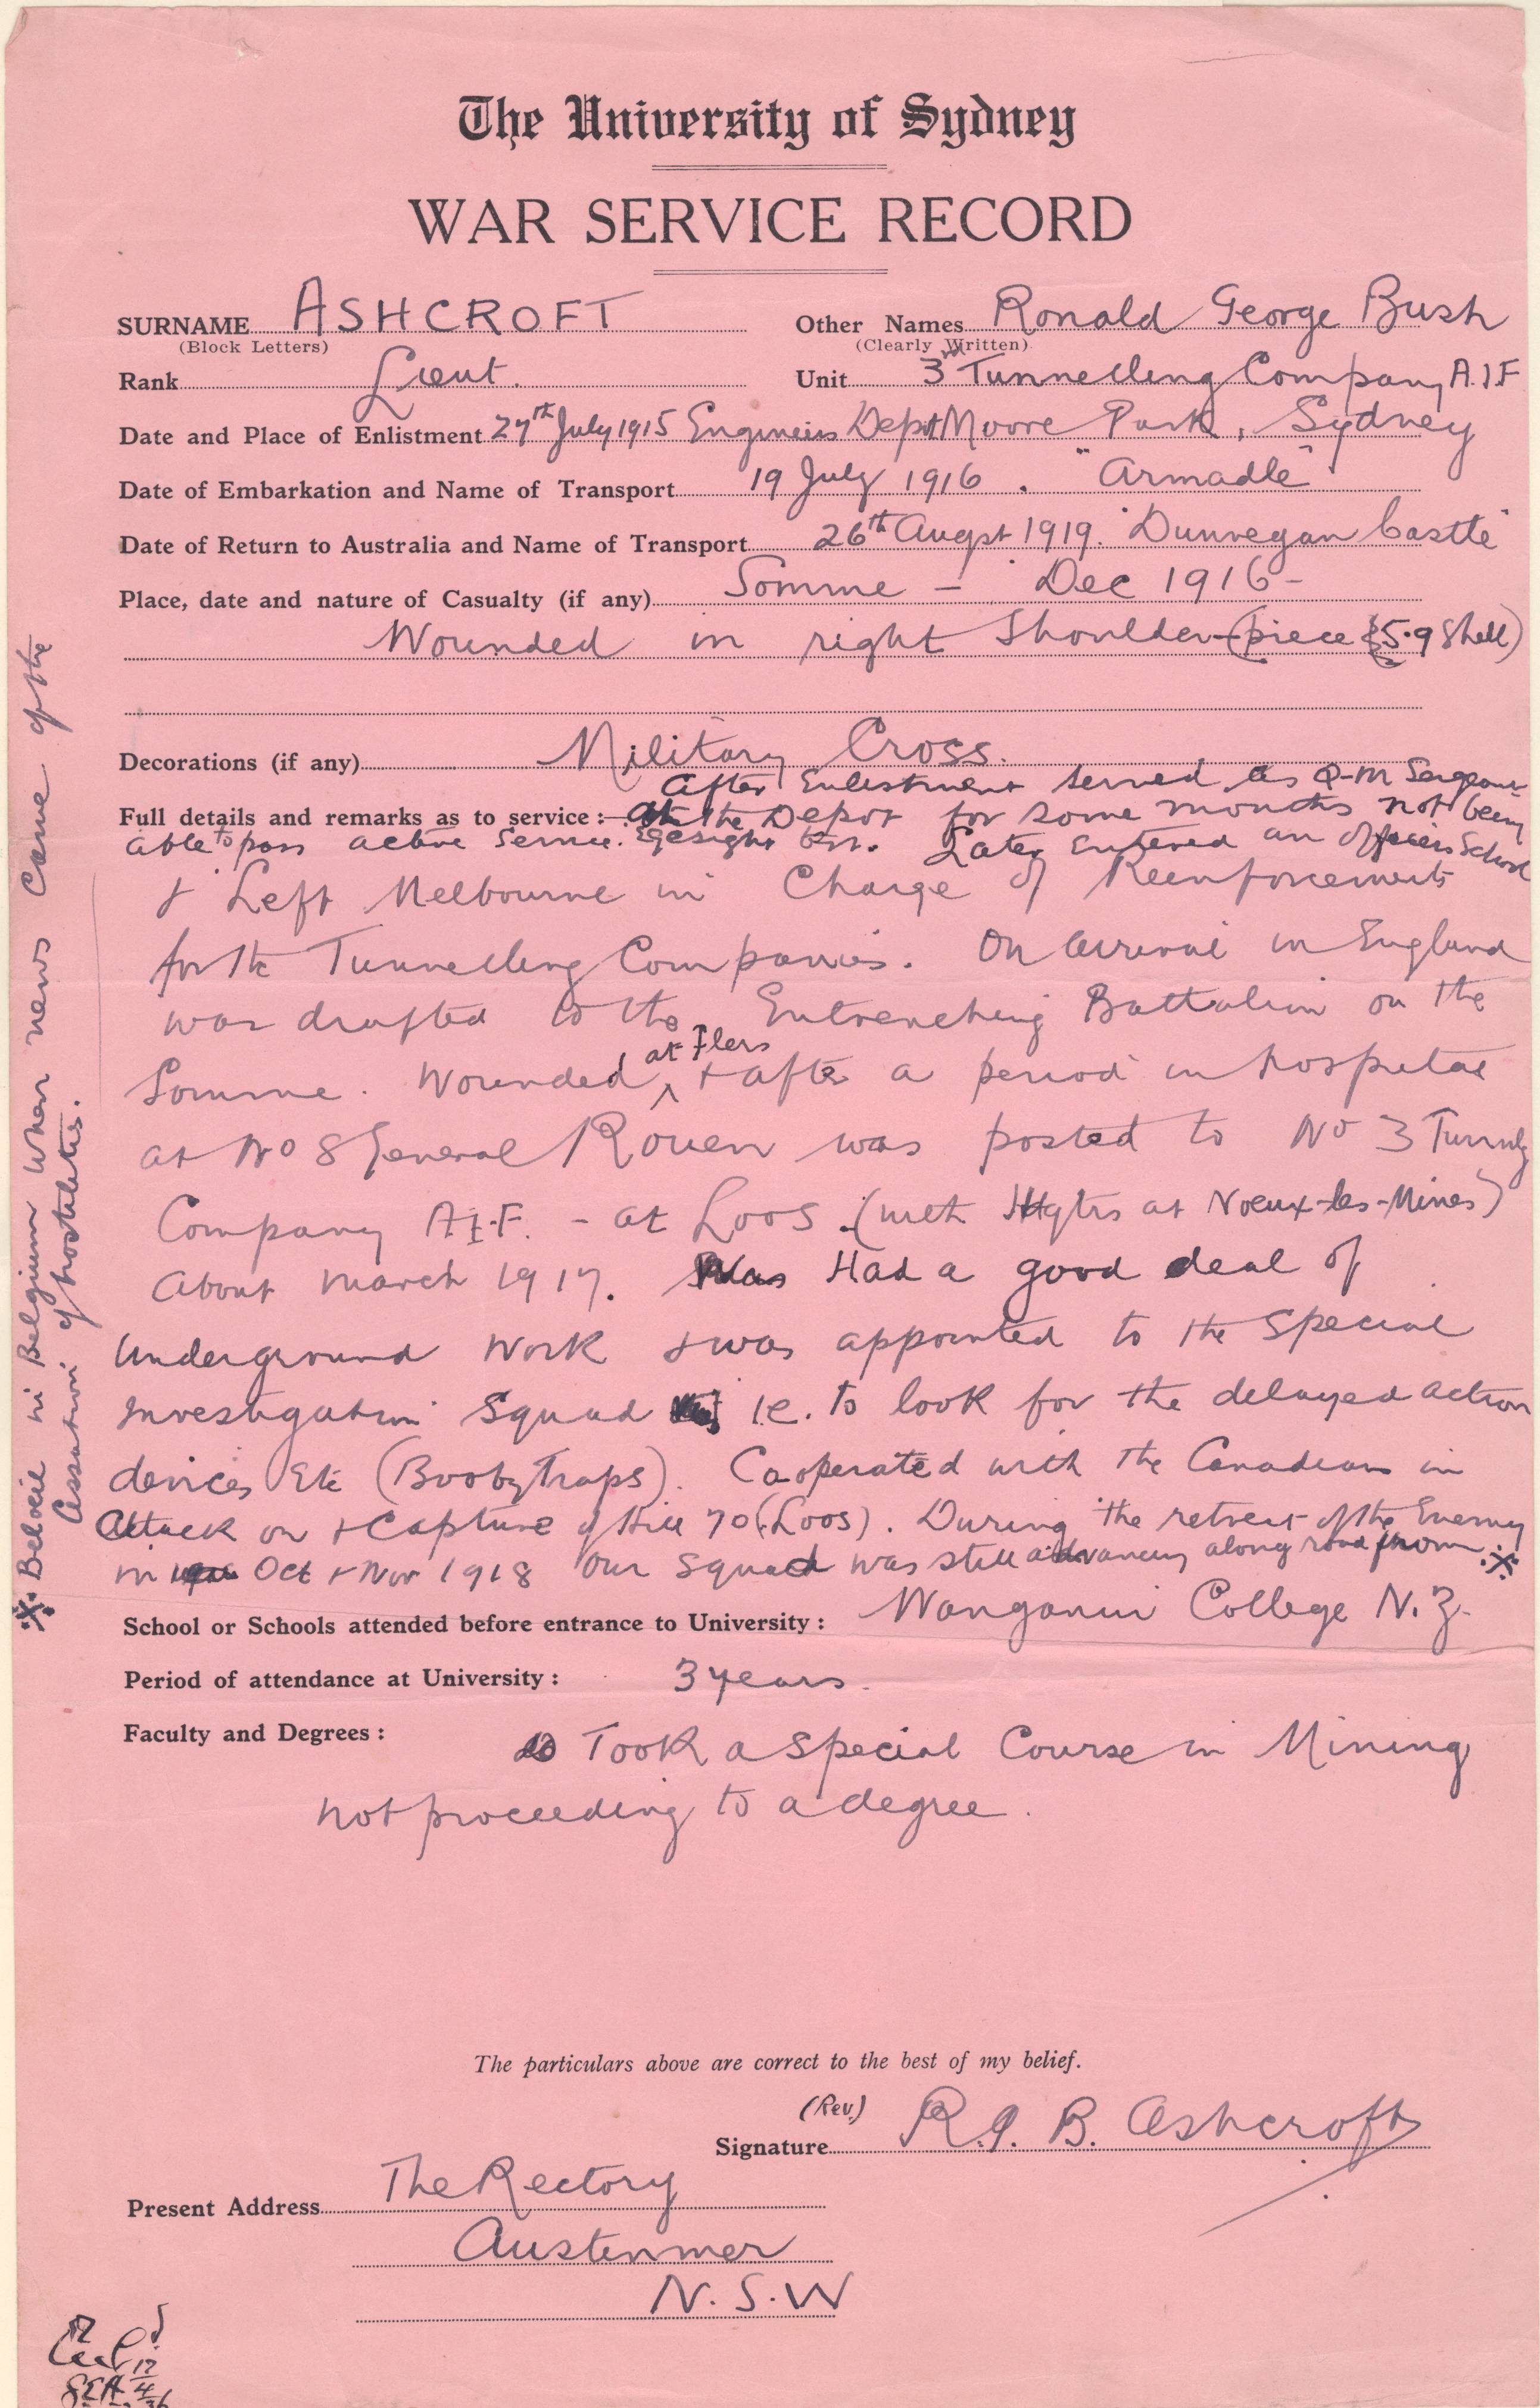 The University of Sydney
WAR SERVICE RECORD
SURNAME ASHCROFT Other Names Ronald George Bush
(Block Letters) (Clearly Written)
Rank Lieut. Unit 3rd Tunnelling Company A.I.F
Date and Place of Enlistment 27th July 1915 Engineers Depot Moore Park, Sydney
Date of Embarkation and Name of Transport 19 July 1916. "Armadle"
Date of Return to Australia and Name of Transport 26th Augst 1919. "Dunvegan Castle"
Place, date and nature of Casualty (if any) Somme - Dec 1916-
Wounded in right Shoulder-(piece of 5.9 Shell)
Decorations (if any) Military Cross.
After Enlistment served as Q-M Sergeant
Full details and remarks as to service: At the Depot for some months not being
able to pass active Service. Eyesight test. Later Entered an Officers School
& Left Melbourne in Charge of Reenforcements
for the Tunnelling Companies. On arrival in England
was drafted to the Entrenching Battalion on the
at Flers
Somme. Wounded & after a period in hospital
at No 8 General Rouen was posted to No 3 Tunnlg
Company A.I.F. - at Loos. (with Hqtrs at Noeux-les-Mines)
About March 1917. Was Had a good deal of
underground work & was appointed to the Special
Investigation Squad i.e. to look for the delayed action
devices Etc (Booby Traps). Cooperated with the Canadians in
attack on & Capture of Hill 70 (Loos). During the retreat of the Enemy
in Oct & Nov 1918 our squad was still advancing along road from ※
※ Beloeil in Belgium when news came of the
cessation of hostilities.
School or Schools attended before entrance to University: Wanganui College N.Z.
Period of attendance at University: 3 years.
Faculty and Degrees: Took a special Course in Mining
not proceeding to a degree.
The particulars above are correct to the best of my belief.
(Rev.)
Signature R.G.B. Ashcroft
Present Address The Rectory
Austenmer
N.S.W
17
4
36